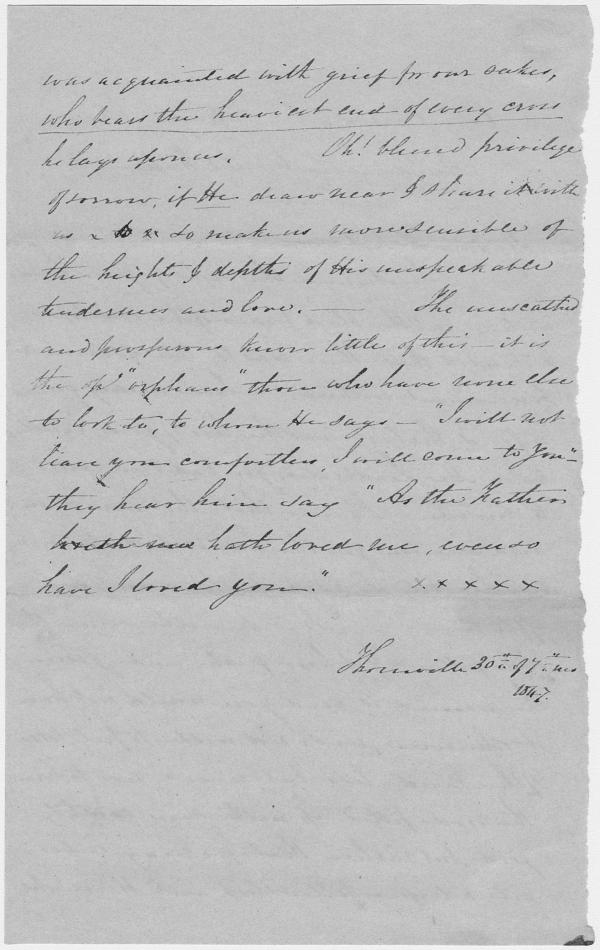 was acquainted with grief for our sakes,
who bears the heaviest end of every cross
he lays upon us. Oh! blessed privilege
of sorrow, if He draw near & share it with
us x x x so make us more sensible of
the heights & depths of His unspeakable
tenderness and love. — The unscathed
and prosperous know little of this — it is
the "orphans" those who have none else
to look to, to whom He says — "I will not
leave you comfortless, I will come to you"
they hear him say "As the Father
hath loved me, even so
have I loved you." x x x x x
30th of 7th mo
1847.